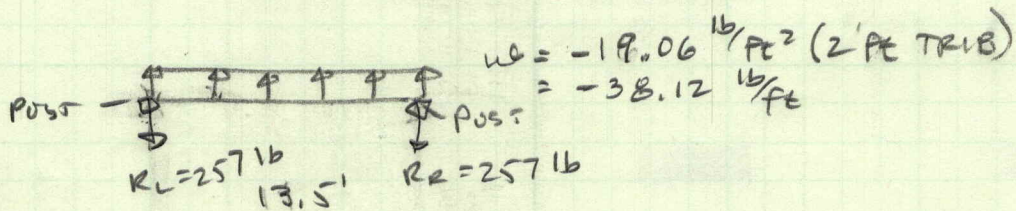 wl = -19.06 lb/ft² (2 ft TRIB)
= -38.12 lb/ft
POST
POST
RL = 257 lb
RR = 257 lb
13.5'